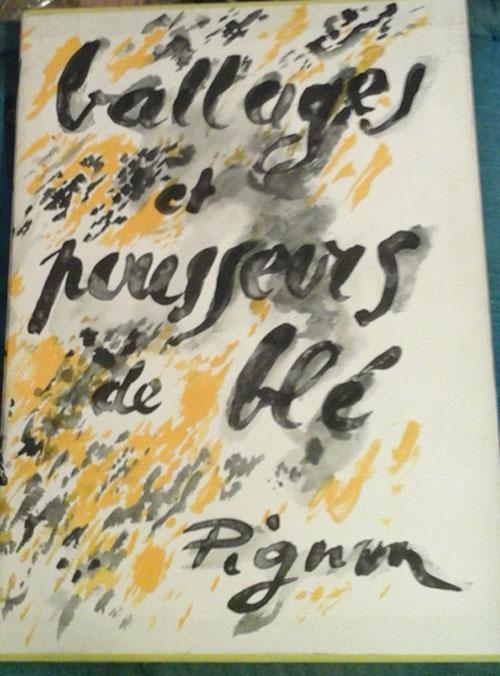 battages
et
pousseurs
de blé
Pignon